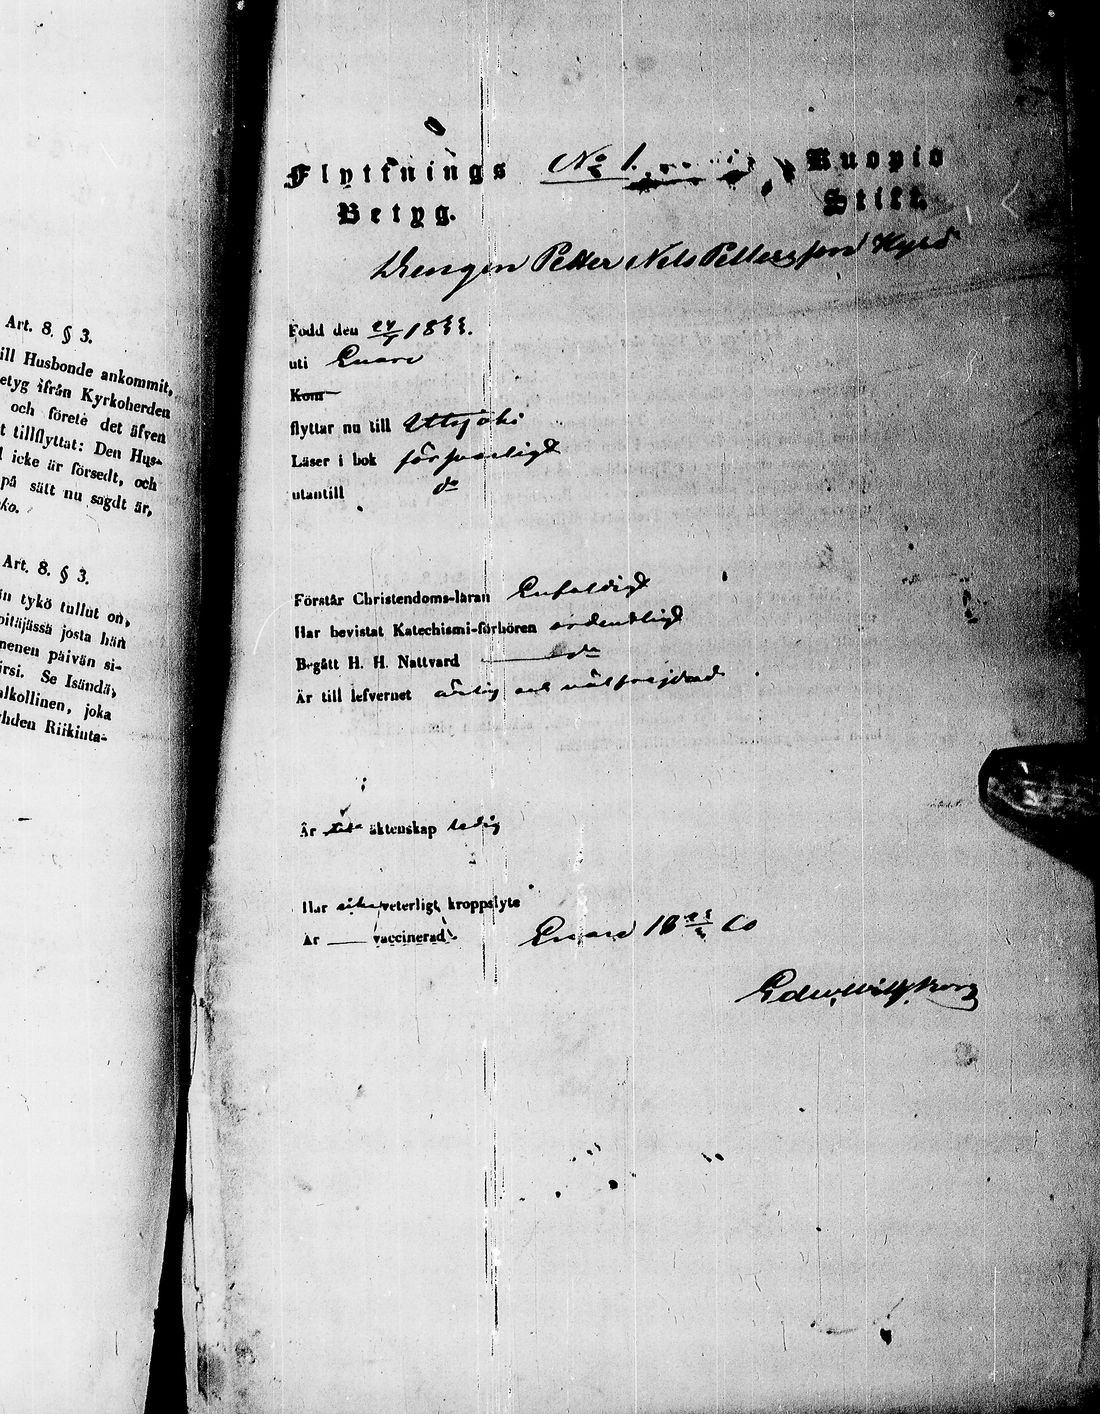 Art. 8. § 3.
ill Husbonde ankommit,
etyg ifrån Kyrkoherden
och förete det äfven
t tillflyttat: Den Hus-
l icke är försedt, och
på sält nu sagdt är,
ko.
Art. 8. § 3.
in tykö tullut on,
pitäjässä josta hän
nenen päivän si-
irsi. Se Isändä,
alkollinen, joka
yhden Riikinta-
Flyttnings Betyg.
No 1.
Kuopio Stift.
Drengen Petter Nels Pettersson Kyrö
Född den 24/ 18
uti Enare
Kom
flyttar nu till Uttsjoki
Läser i bok försvarligt
utantill do
Förstår Christendoms-läran Enfaldigt
Har bevistat Katechismi-förhören ordentligt
Begått H. H. Nattvard do
Är till lefvernet ärlig och välfrejdad
Är till äktenskap ledig
Har icke veterligt kroppslyte
Är vaccinerad
Enare 18 60
Edw. Wilh. Borg